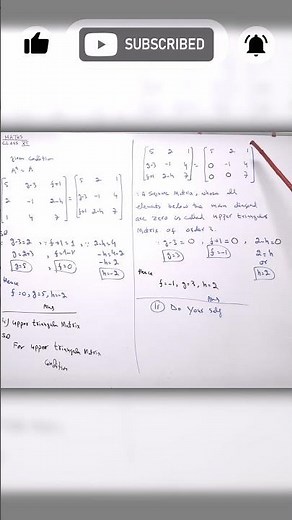 SUBSCRIBED
MATHS
CLASS XI
given condition
Aᵗ = A
5 g-3 f+1 5 2 1
2 -1 2-h = g-3 -1 4
1 4 7 f+1 2-h 7
g-3=2, f+1=1, 2-h=4
g=2+3 f=1-1 -h=4-2
-h=2
g=5 f=0 h=-2
Hence
f=0, g=5, h=-2
Ans
Upper triangular Matrix
For upper triangular Matrix
Condition
5 2 1 5 2 1
g-3 -1 4 = 0 -1 4
f+1 2-h 7 0 0 7
A square Matrix, whose all
elements below the main diagonal
are zero is called upper triangular
Matrix of order 3.
g-3=0, f+1=0, 2-h=0
g=3 f=-1 2=h
or
h=2
Hence
f=-1, g=3, h=2
Ans
Do your self